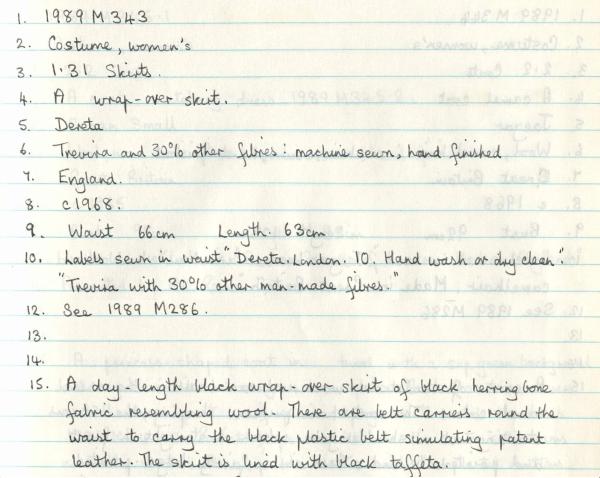 1. 1989 M 343
2. Costume, women's
3. 1.31 Skirts.
4. A wrap-over skirt.
5. Dereta
6. Trevira and 30% other fibres: machine sewn, hand finished
7. England.
8. c1968.
9. Waist 66cm Length. 63cm
10. Labels sewn in waist "Dereta. London. 10. Hand wash or dry clean".
"Trevira with 30% other man-made fibres."
12. See 1989 M286.
13.
14.
15. A day-length black wrap-over skirt of black herringbone
fabric resembling wool. There are belt carriers round the
waist to carry the black plastic belt simulating patent
leather. The skirt is lined with black taffeta.